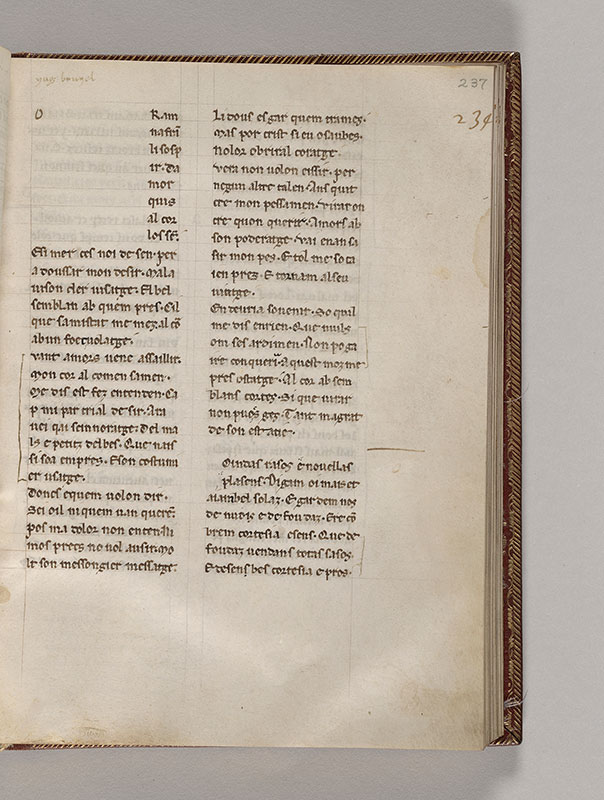 yug brunel
237
234
O Ram
nafri
li sosp
ir. da
mor
quis
al cor
los se.
Esi mer ces noi de sen. per
a doussir mon desir. Mala
uison cler uisatge. El bel
semblan ab quem pres. Eil
que samistat me mezal co
ab un foc uolatge.
Vant amors uene assaillir.
Mon cor al comensamen.
Me dis est fez entenden. Ea
p mi par trial desir. Ara
uei qai sein noratge. Del ma
ls e petitz del bes. Que nais
si soa empres. Eson costum
er usatge.
Doncs equem uolon dir.
Sei oil ni quem uan quere.
Pos ma dolor non entendi
mos precs no uol ausir. Mo
lt son messongier messatge.
Li dous esgar quem trames.
Mas por crist si eu osaubes.
Nolor obriral coratge.
Vera non uolon eissir. per
negun altre talen. Ans quit
cre mon pessimen. Virar on
cre quon querir. Amors ab
son poderatge. Vai enansa
sir mon pes. E tol me so ca
ien pres. E tornam al seu
usatge.
En deuria souenir. So qual
me dis en rien. Que nuls
om ses ardimen. Non poga
ire conqueri. Aquest moz me
pres ostatge. Al cor ab sem
blans cortes. Si que uirar
non puosc ges. Tant magrat
de son estatie.
Ointas rasos e nouellas
plasens. Digam oimais et
aiam bel solaz. E gardem nos
de nueis e de foudaz. Ere co
brem cortesia e sens. Que de
foudaz uendans totas sasos.
E de sens bes cortesia e pros.